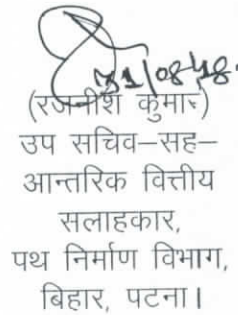 31/08/18.
(रजनीश कुमार)
उप सचिव–सह–
आन्तरिक वित्तीय
सलाहकार,
पथ निर्माण विभाग,
बिहार, पटना।